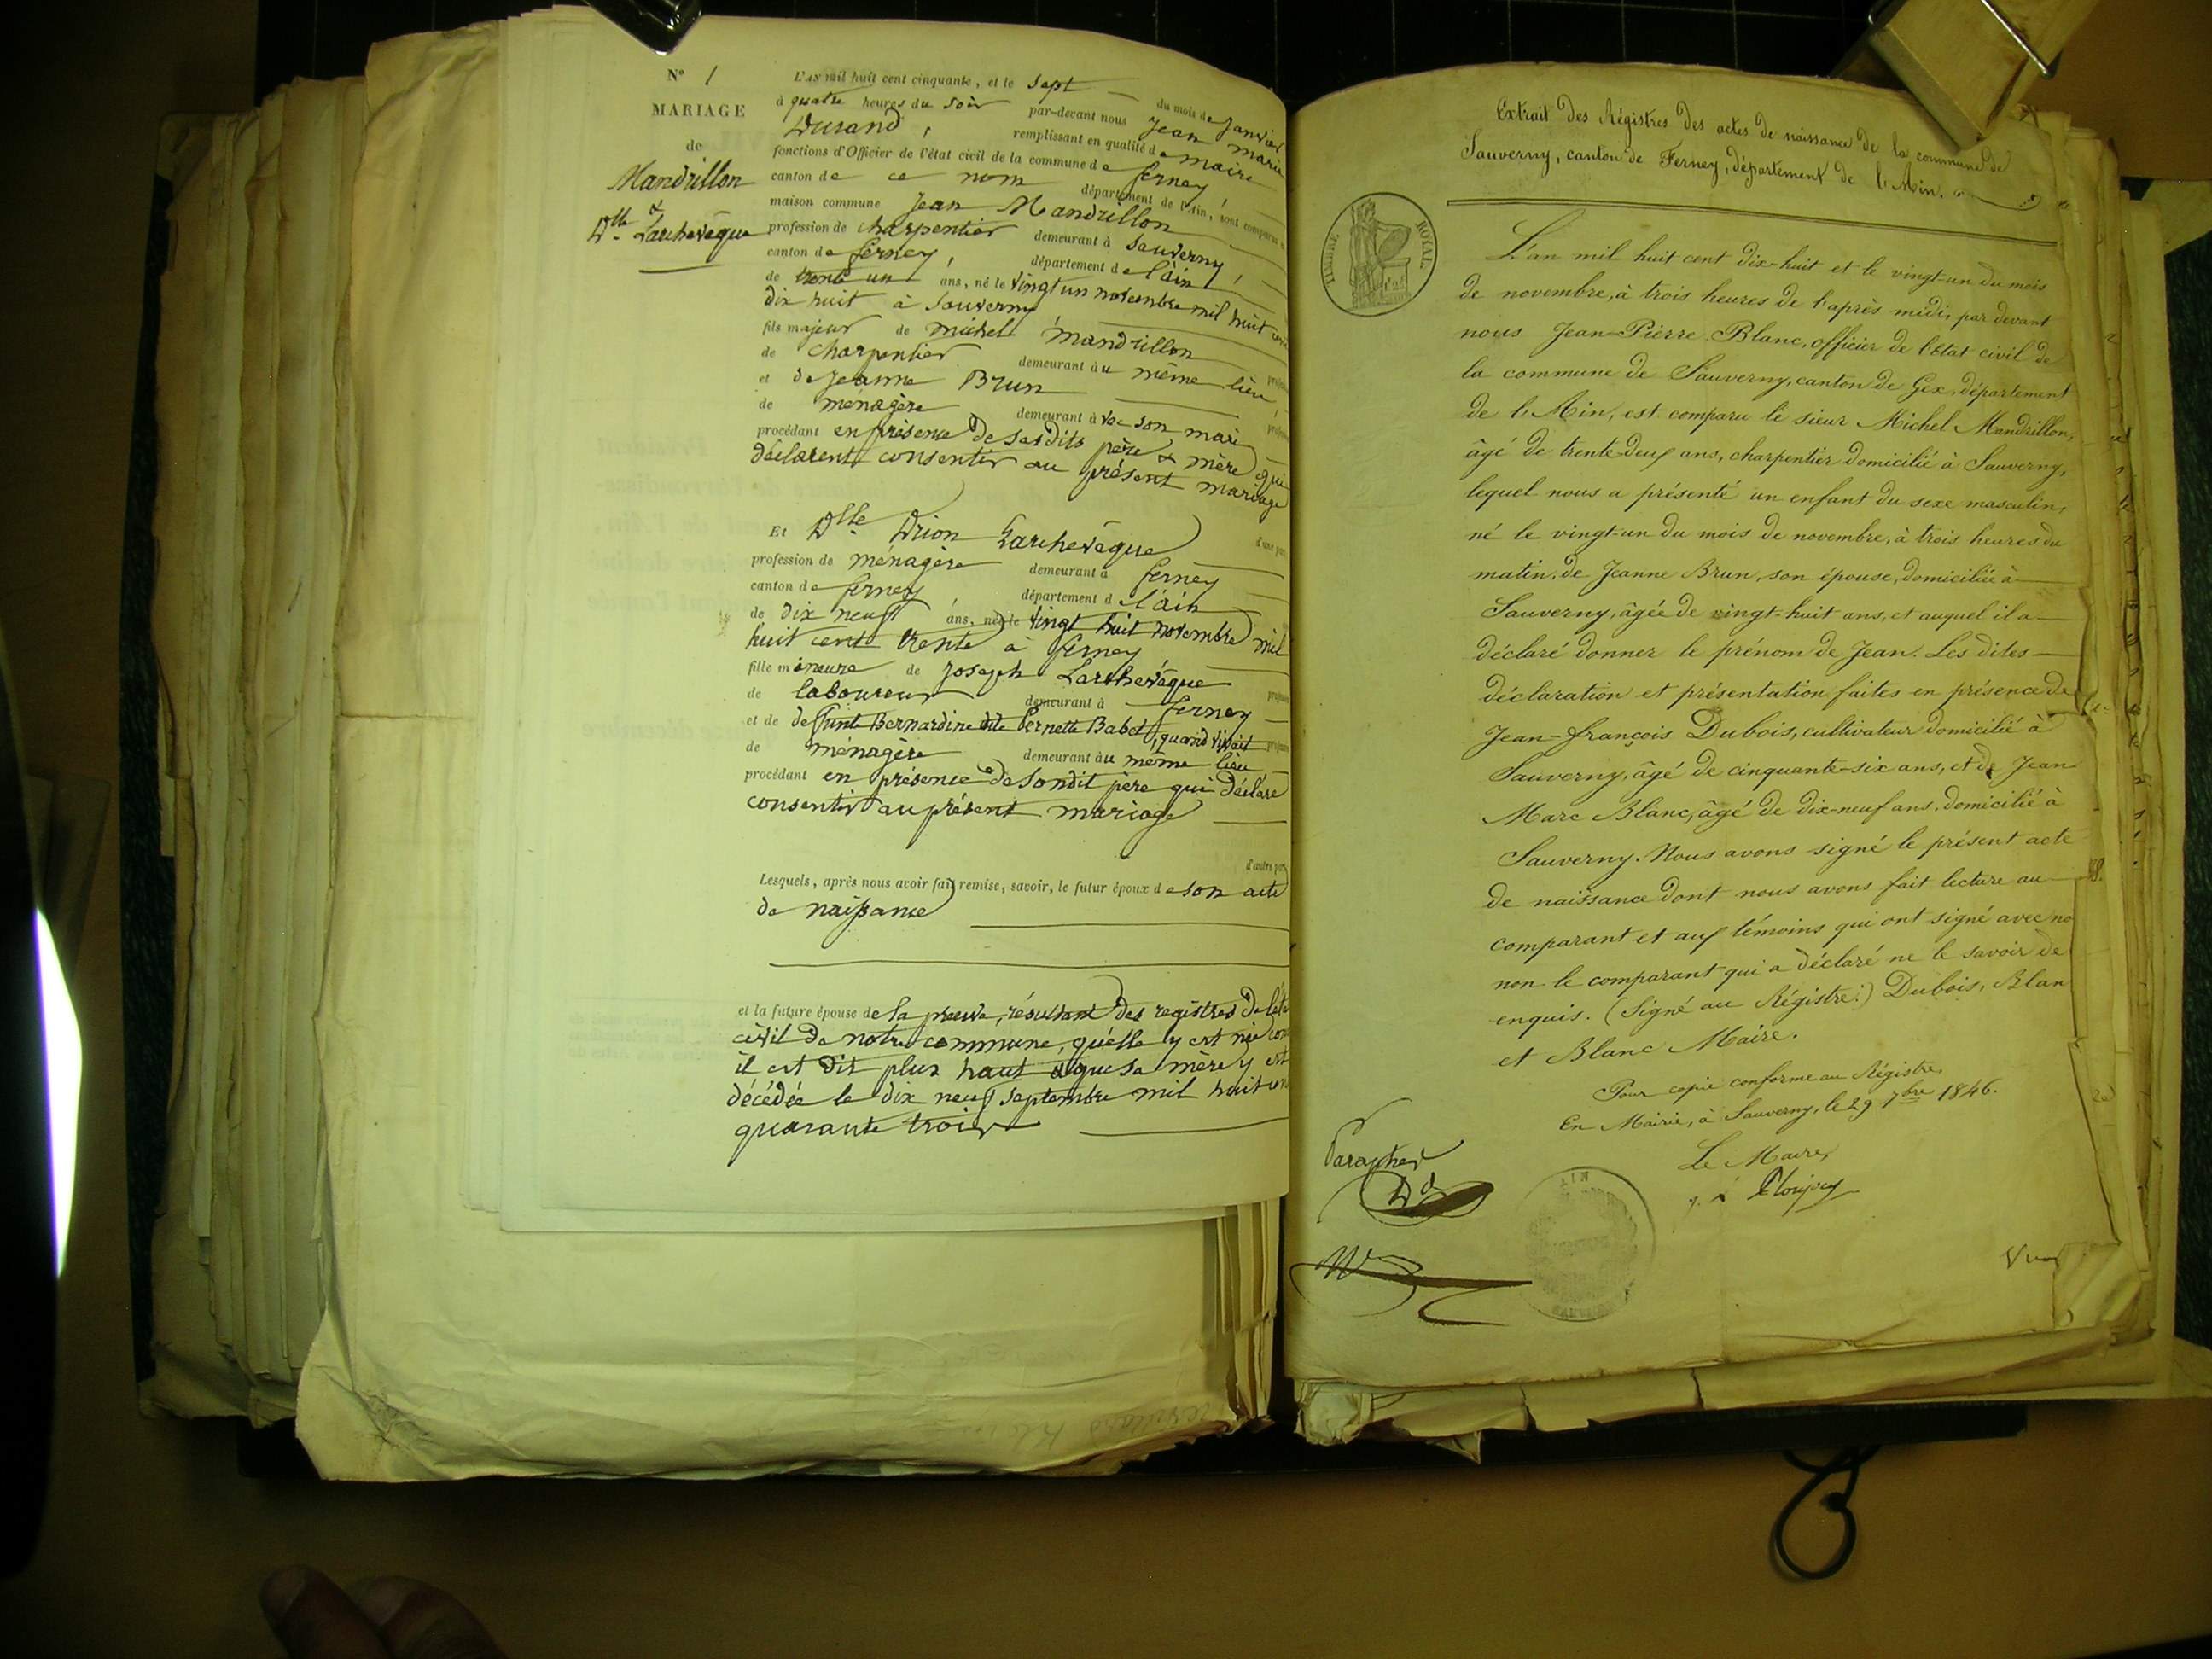 N° 1
MARIAGE
de
Mandrillon
&
Dlle Larchevêque
L'AN mil huit cent cinquante, et le sept du mois de janvier
à quatre heures du soir par-devant nous Jean Marie
Durand, remplissant en qualité de maire
fonctions d'Officier de l'état civil de la commune de ferney
canton de ce nom département de l'Ain, sont comparus
maison commune Jean Mandrillon
profession de charpentier demeurant à Sauverny,
canton de ferney, département de l'ain
de trente un ans, né le vingt un novembre mil huit cent
dix huit à Sauverny
fils majeur de michel Mandrillon
de charpentier demeurant au même lieu,
et de Jeanne Brun
de ménagère demeurant avec son mari
procédant en présence de ses dits père & mère qui
déclarent consentir au présent mariage
d'une part
Et Dlle Drion Larchevêque
profession de ménagère demeurant à ferney
canton de ferney, département d l'ain
de dix neuf ans, née le vingt huit novembre mil
huit cent trente à ferney
fille mineure de Joseph Larchevêque
de laboureur demeurant à ferney
et de défunte Bernardine dite Pernette Babel, quand vivait
de ménagère demeurant au même lieu
procédant en présence de sondit père qui déclare
consentir au présent mariage
d'autre part
Lesquels, après nous avoir fait remise, savoir, le futur époux de son acte
de naissance
et la future épouse de la preuve, résultant des registres de l'état
civil de notre commune, qu'elle y est née com
il est dit plus haut & que sa mère y est
décédée le dix neuf septembre mil huit cen
quarante trois
Extrait des Régistres des actes de naissance de la commune de
Sauverny, canton de Ferney, département de l'Ain.
TIMBRE ROYAL
L'an mil huit cent dix-huit et le vingt-un du mois
de novembre, à trois heures de l'après midi, par devant
nous Jean-Pierre Blanc, officier de l'état civil de
la commune de Sauverny, canton de Gex, département
de l'Ain, est comparu le sieur Michel Mandrillon,
âgé de trente-deux ans, charpentier domicilié à Sauverny,
lequel nous a présenté un enfant du sexe masculin,
né le vingt-un du mois de novembre, à trois heures du
matin, de Jeanne Brun, son épouse, domiciliée à
Sauverny, âgée de vingt-huit ans, et auquel il a
déclaré donner le prénom de Jean. Les dites
déclaration et présentation faites en présence de
Jean-françois Dubois, cultivateur domicilié à
Sauverny, âgé de cinquante-six ans, et de Jean
Marc Blanc, âgé de dix-neuf ans, domicilié à
Sauverny. Nous avons signé le présent acte
de naissance dont nous avons fait lecture au
comparant et aux témoins qui ont signé avec no
non le comparant qui a déclaré ne le savoir de
enquis. (Signé au Régistre:) Dubois, Blan
et Blanc Maire.
Pour copie conforme au Régistre,
En Mairie, à Sauverny, le 29 7bre 1846.
Le Maire,
Paraphé